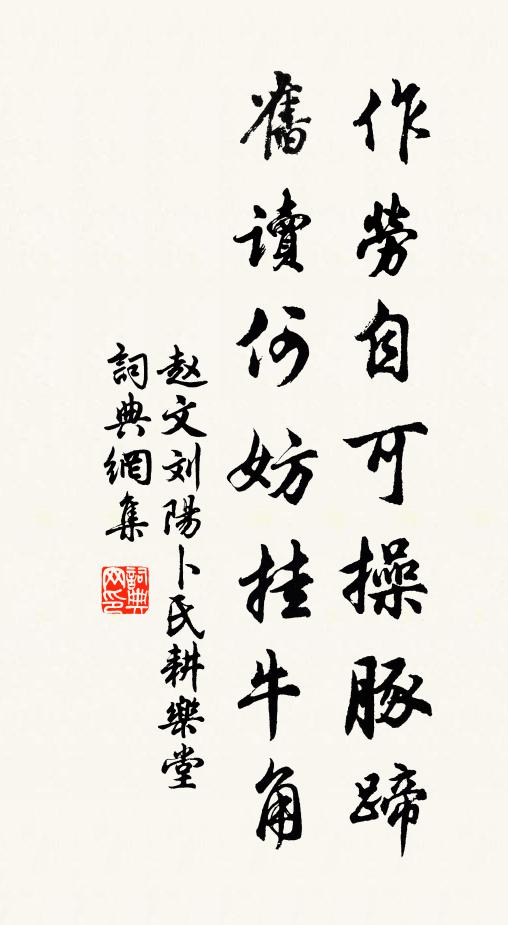 作勞自可操豚蹄
舊讀何妨挂牛角
赵文刘陽卜氏耕樂堂
詞典網集
詞典网印